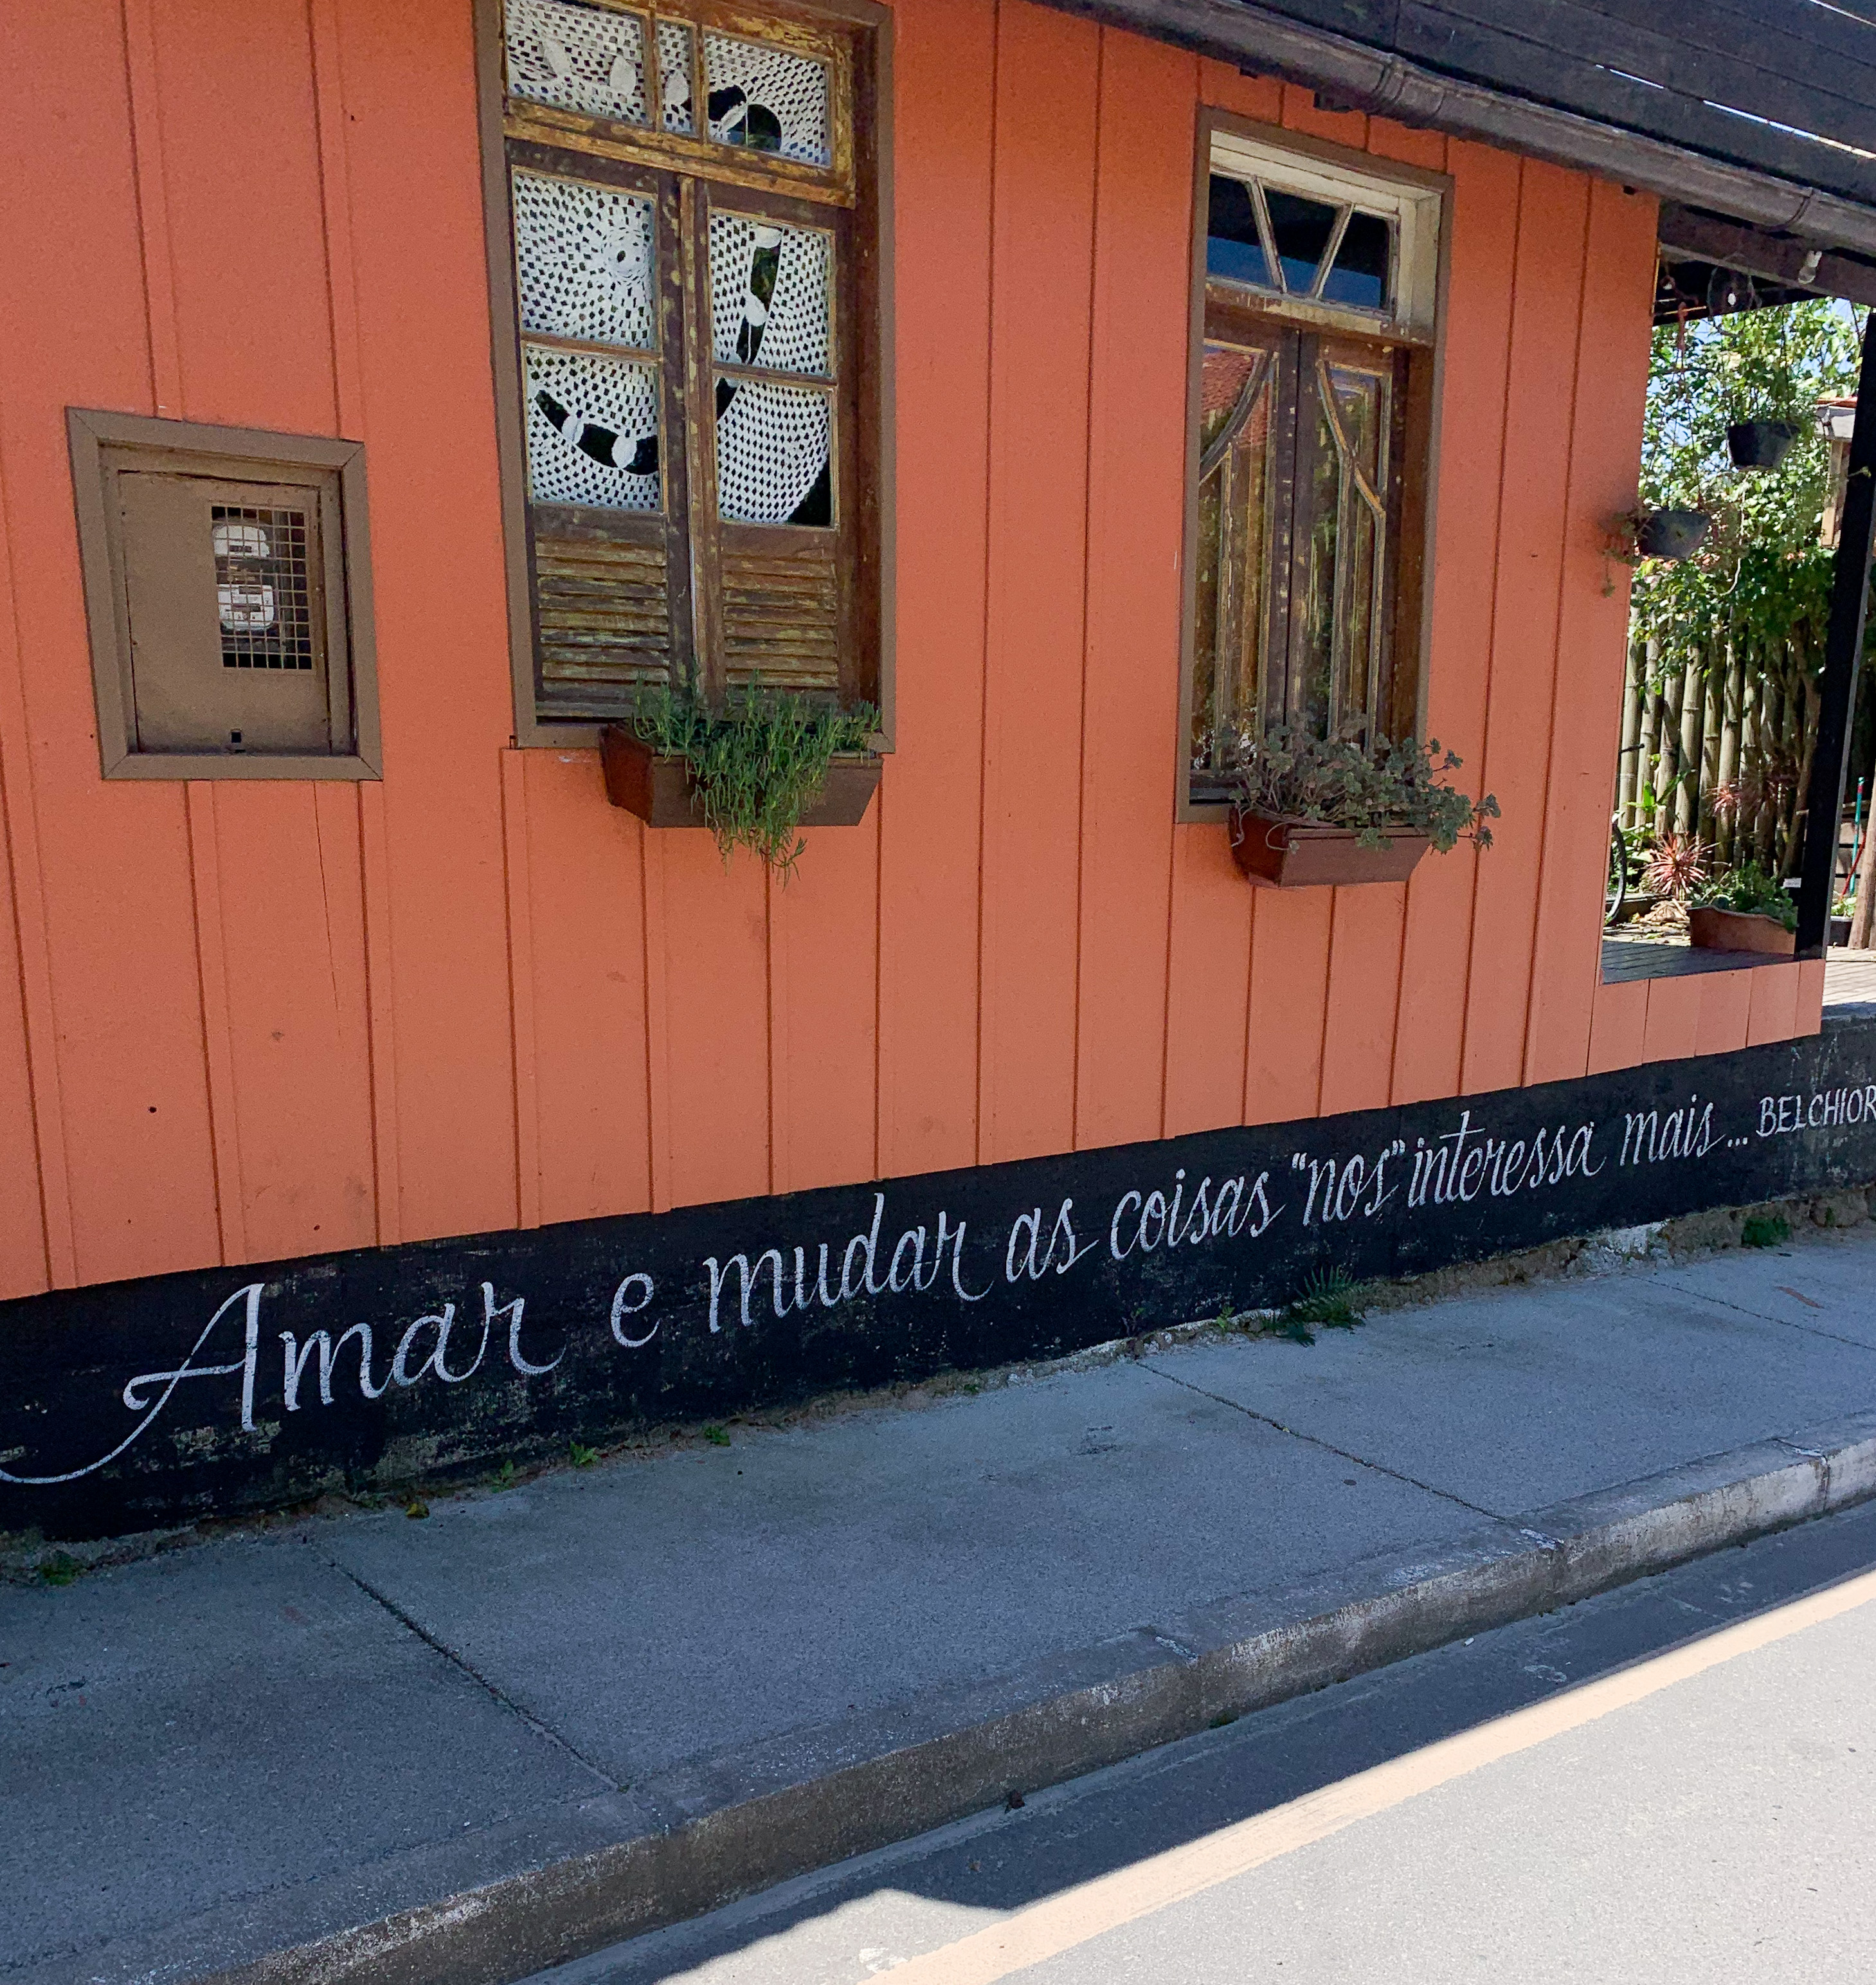 Amar e mudar as coisas "nos" interessa mais... BELCHIOR